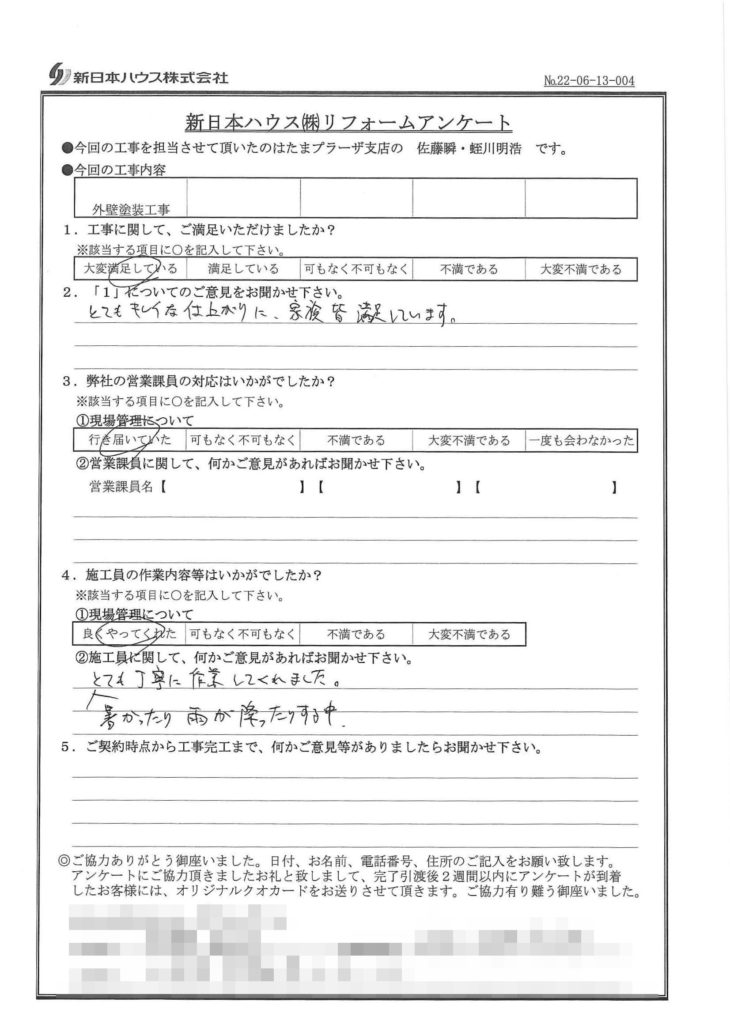 新日本ハウス株式会社
№22-06-13-004
新日本ハウス㈱リフォームアンケート
●今回の工事を担当させて頂いたのはたまプラーザ支店の 佐藤瞬・蛭川明浩 です。
●今回の工事内容
外壁塗装工事
1．工事に関して、ご満足いただけましたか？
※該当する項目に○を記入して下さい。
大変満足している 満足している 可もなく不可もなく 不満である 大変不満である
2．「1」についてのご意見をお聞かせ下さい。
とてもキレイな仕上がりに、家族皆満足しています。
3．弊社の営業課員の対応はいかがでしたか？
※該当する項目に○を記入して下さい。
①現場管理について
行き届いていた 可もなく不可もなく 不満である 大変不満である 一度も会わなかった
②営業課員に関して、何かご意見があればお聞かせ下さい。
営業課員名【 】【 】【 】
4．施工員の作業内容等はいかがでしたか？
※該当する項目に○を記入して下さい。
①現場管理について
良くやってくれた 可もなく不可もなく 不満である 大変不満である
②施工員に関して、何かご意見があればお聞かせ下さい。
とても丁寧に作業してくれました。
暑かったり雨が降ったりする中、
5．ご契約時点から工事完工まで、何かご意見等がありましたらお聞かせ下さい。
◎ご協力ありがとう御座いました。日付、お名前、電話番号、住所のご記入をお願い致します。
アンケートにご協力頂きましたお礼と致しまして、完了引渡後２週間以内にアンケートが到着
したお客様には、オリジナルクオカードをお送りさせて頂きます。ご協力有り難う御座いました。